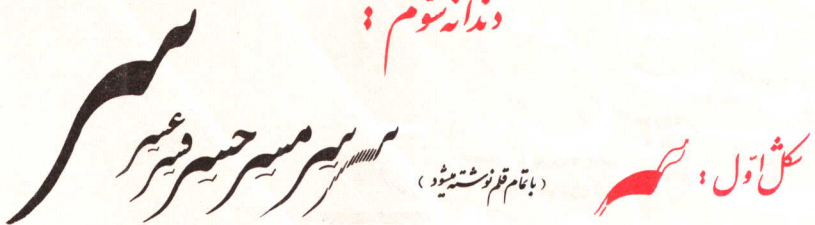 دندانه سوم :
شکل اوّل : سر (با تمام قلم نوشته میشود) سر سیر مسیر حسیر فسیر عسیر
سر